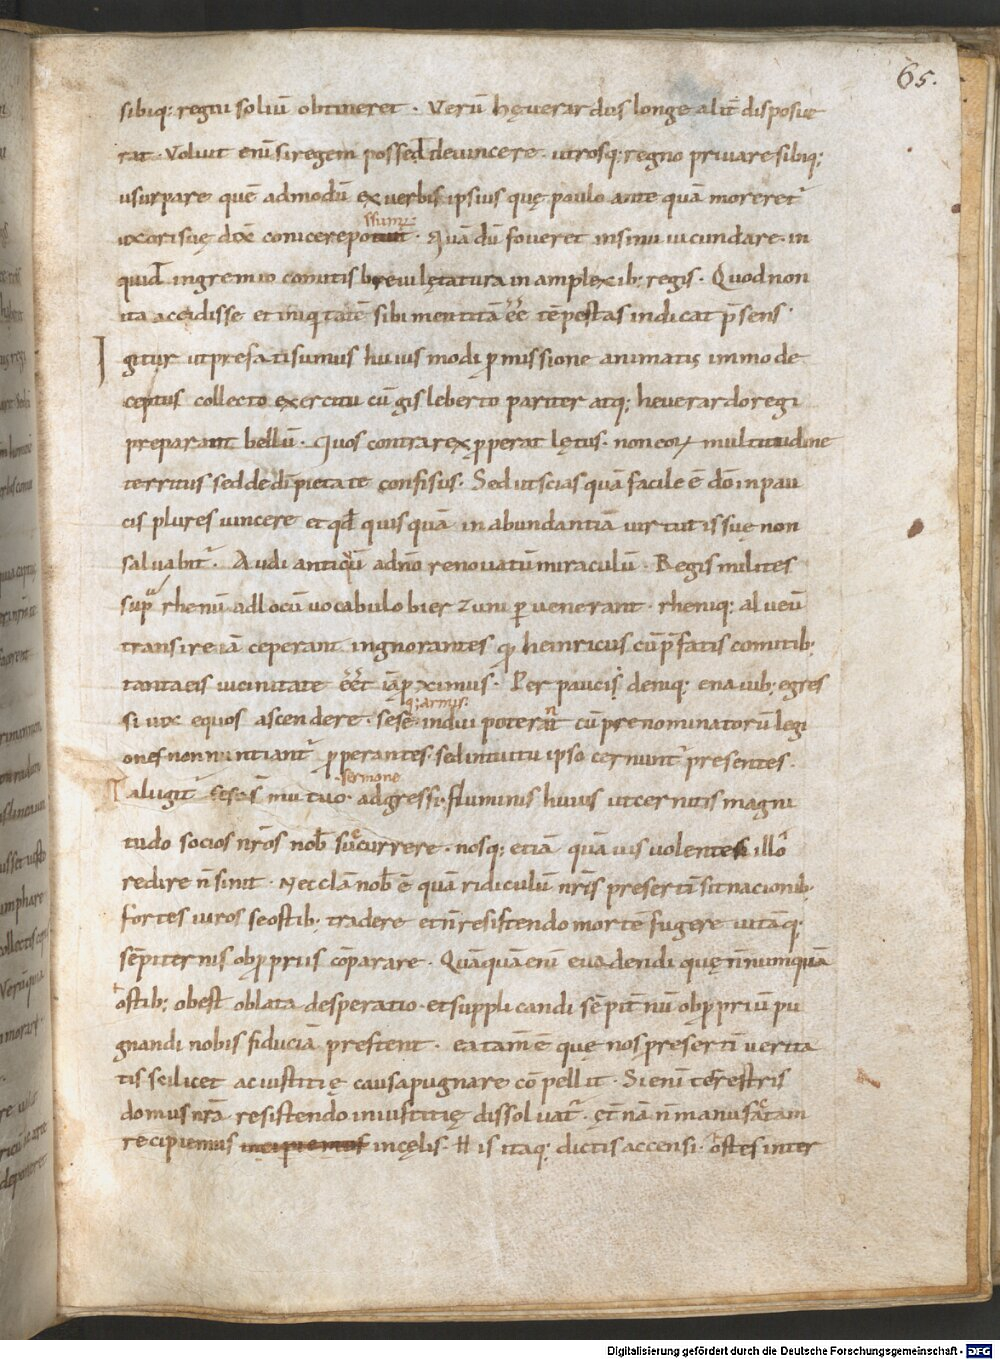 65.
sibiq; regni soliū obtineret · Verū hęverardus longe alit̄ disposue
rat · Voluit enī si regem possed̄ devincere · utrosq; regno privare sibiq;
usurpare quē admodū ex verbis ipsius quę paulo ante quā moreret̄
uxori suę dix̄ conicere potuit · Quā dū foveret in sinu iucundare · in
ssum;
quid̄ in gremio comitis brevi lętatura in amplexib; regis · Quod non
ita accidisse et iniq tatē sibi mentitā ēē tēpestas indicat p̄sens ·
Igitur ut prefati sumus huius modi p̄missione animatis immo de
ceptus collecto exercitu cū gisleberto pariter atq; heverardo regi
preparant bellū · Quos contra rex p̄perat lętus · non eoꝝ multitudine
territus sed de dī pietate confisus · Sed ut scias quā facile ē dn̄o in pau
cis plures vincere et qd̄ quis quā in abundantia virtutis suę non
salvabit̄ · Audi anticū ad nō renovatū miraculū · Regis milites
supͣ rhenū ad locū vocabulo bierzuni pervenerant · rheniq; alveū
transire iā ceperant ingnorantes qͩ heinricus cū p̄fatis comitib;
tanta eis vicinitate ēēt iā p̄ximus · Per paucis deniq; e navib; egres
q; armis ·
si vix equos ascendere · sese indui poterant cū prenominatorū legi
ones non nuntiant̄ p̄perantes · sed intuitu ipso cernunt̄ presentes ·
sermone
Taliigit̄ sese mutuo · adgressi · fluminis huius ut cernitis magni
tudo socios nr̄os nob̄ succurrere · nosq; etiā quā vis volentes illo
redire n̄ sinit · Nec clā nob̄ ē quā ridiculū nr̄is presertī sit nacionib;
fortes viros se ostib; tradere et n̄ resistendo mortē fugere vitāq;
sēpiternis obp̄priis cōparare · Quāquā enī evadendi quę n̄ numquā
ostib; obest oblata desperatio · et supplicandi sēpit̄nū obp̄priū pu
gnandi nobis fiduciā prestent · ea tam̄ ē que nos presertī verita
tis scilicet ac iustitię causa pugnare cōpellit · Si enī terrestris
domus nr̄a resistendo iniustitię dissolvat̄ · ęt̄nā n̄ manu factam
recipiemus in cęlis · His itaq; dictis accensi · ostes inter
Digitalisierung gefördert durch die Deutsche Forschungsgemeinschaft - DFG